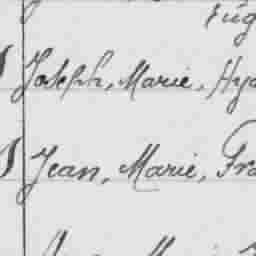 Eug
Joseph, Marie, Hya
Jean, Marie, Fra